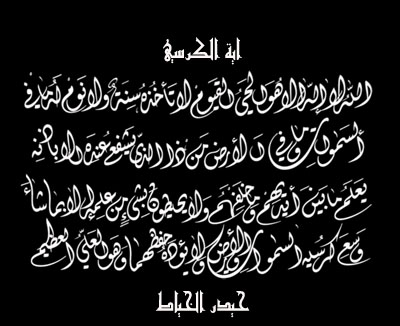 اية الكرسي
الله لا إله إلا هو الحي القيوم لا تأخذه سنة ولا نوم له ما في
السموات وما في الأرض من ذا الذي يشفع عنده إلا بإذنه
يعلم ما بين أيديهم وما خلفهم ولا يحيطون بشيء من علمه إلا بما شاء
وسع كرسيه السموات والأرض ولا يؤده حفظهما وهو العلي العظيم
حيدر الخياط